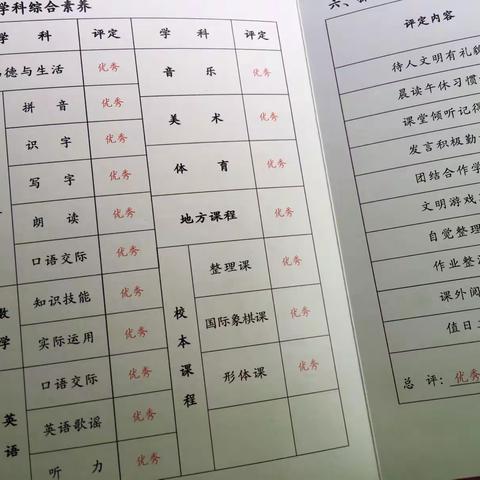 学科综合素养
学 科 评定 学 科 评定
德与生活 优秀 音 乐 优秀
拼 音 优秀
识 字 优秀 美 术 优秀
写 字 优秀 体 育 优秀
朗 读 优秀 地方课程 优秀
口语交际 优秀 整理课 优秀
数学 知识技能 优秀 国际象棋课 优秀
实际运用 优秀
校本课程 形体课 优秀
英语 口语交际 优秀
英语歌谣 优秀
听 力 优秀
六、
评定内容
待人文明有礼貌
晨读午休习惯
课堂倾听记得
发言积极勤
团结合作学
文明游戏
自觉整理
作业整
课外阅
值日
总 评：优秀